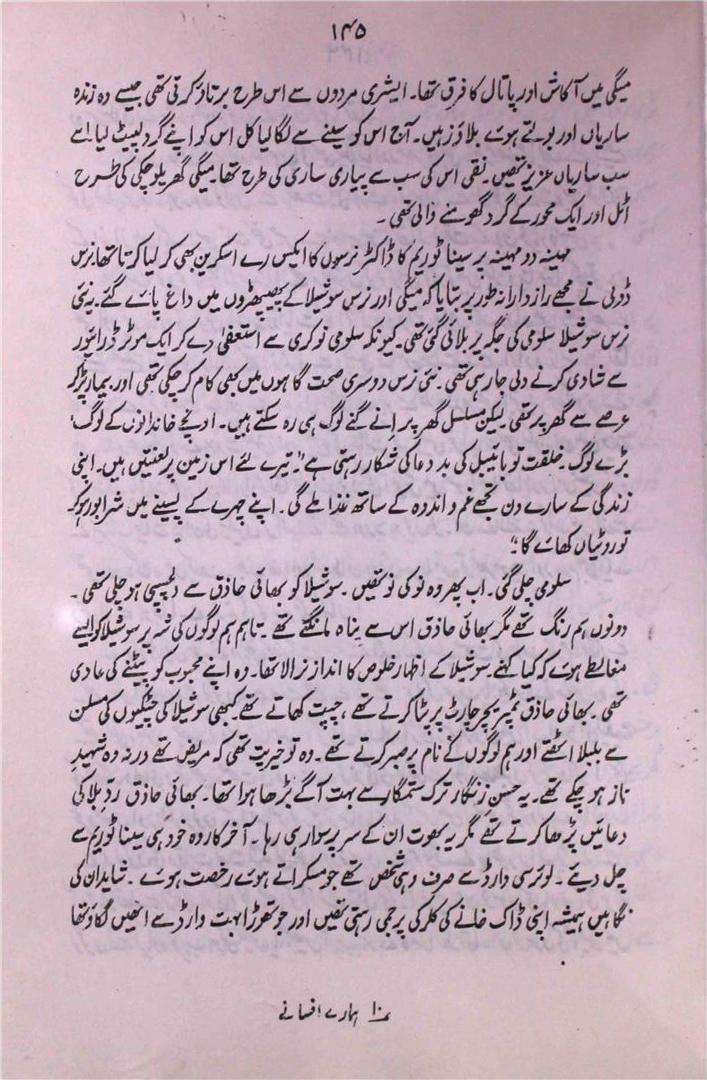 ۱۴۵
میگی میں آکاش اور پاتال کا فرق تھا۔ ایشری مردوں سے اس طرح برتاؤ کرتی تھی جیسے وہ زندہ
ساریاں اور بولتے ہوئے بلاؤز ہیں۔ آج اس کو سینے سے لگا لیا کل اس کو اپنے گرد لپیٹ لیا۔ اسے
سب ساریاں عزیز تھیں۔ نقی اس کی سب سے پیاری ساری کی طرح تھا۔ میگی گھریلو چکی کی طرح
اٹل اور ایک محور کے گرد گھومنے والی تھی۔
مہینہ دو مہینہ پر سینا ٹوریم کا ڈاکٹر نرسوں کا ایکس رے اسکرین بھی کر لیا کرتا تھا۔ نرس
ڈولی نے مجھے رازدارانہ طور پر بتایا کہ میگی اور نرس سوشیلا کے پھیپھڑوں میں داغ پائے گئے۔ یہ نئی
نرس سوشیلا سلومی کی جگہ پر بلائی گئی تھی۔ کیونکہ سلومی نوکری سے استعفیٰ دے کر ایک موٹر ڈرائیور
سے شادی کرنے دلی جا رہی تھی۔ نئی نرس دوسری صحت گاہوں میں بھی کام کر چکی تھی اور بیمار پڑ کر
عرصے سے گھر پر تھی لیکن مسلسل گھر پر اِنے گنے لوگ ہی رہ سکتے ہیں۔ اونچے خاندانوں کے لوگ،
بڑے لوگ۔ خلقت تو بائیبل کی بددعا کی شکار رہتی ہے "تیرے لئے اس زمین پر لعنتیں ہیں۔ اپنی
زندگی کے سارے دن تجھے غم و اندوہ کے ساتھ غذا ملے گی۔ اپنے چہرے کے پسینے میں شرابور ہو کر
تو روٹیاں کھائے گا۔"
سلومی چلی گئی۔ اب پھر وہ نو کی نو تھیں۔ سوشیلا کو بھائی حاذق سے دلچسپی ہو چلی تھی۔
دونوں ہم رنگ تھے مگر بھائی حاذق اس سے پناہ مانگتے تھے۔ تاہم ہم لوگوں کی شہ پر سوشیلا کو ایسے
مغالطے ہوئے کہ کیا کہئے۔ سوشیلا کے اظہار خلوص کا انداز نرالا تھا۔ وہ اپنے محبوب کو پیٹنے کی عادی
تھی۔ بھائی حاذق ٹمپریچر چارٹ پر پٹا کرتے تھے، چپت کھاتے تھے۔ کبھی سوشیلا کی چٹکیوں کی مسلن
سے بلبلا اٹھتے اور ہم لوگوں کے نام پر صبر کرتے تھے۔ وہ تو خیریت تھی کہ مریض تھے ورنہ وہ شہیدِ
ناز ہو چکے تھے۔ یہ حسنِ زنگار ترک ستمگار سے بہت آگے بڑھا ہوا تھا۔ بھائی حاذق ردِ بلا کی
دعائیں پڑھا کرتے تھے مگر یہ بھوت ان کے سر پر سوار ہی رہا۔ آخر کار وہ خود ہی سینا ٹوریم سے
چل دیئے۔ لوئرسی وارڈ سے صرف وہی شخص تھے جو مسکراتے ہوئے رخصت ہوئے۔ شاید ان کی
نگاہیں ہمیشہ اپنی ڈاک خانے کی کلرکی پر جمی رہتی تھیں اور جو تھوڑا بہت وارڈ سے انھیں لگاؤ تھا
۱۰ ہمارے افسانے